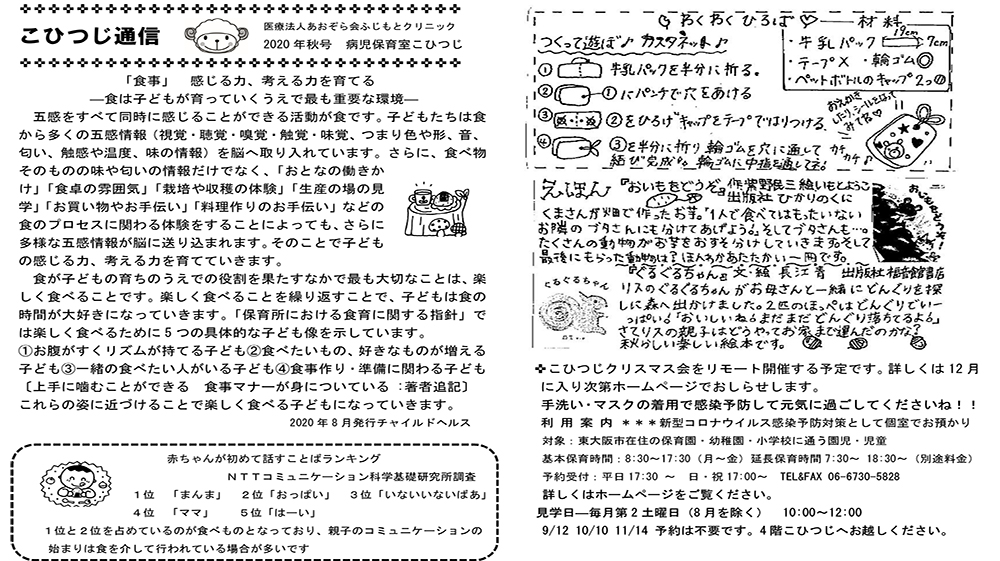 こひつじ通信
医療法人あおぞら会ふじもとクリニック
2020年秋号 病児保育室こひつじ
「食事」 感じる力、考える力を育てる
―食は子どもが育っていくうえで最も重要な環境―
五感をすべて同時に感じることができる活動が食です。子どもたちは食
から多くの五感情報（視覚・聴覚・嗅覚・触覚・味覚、つまり色や形、音、
匂い、触感や温度、味の情報）を脳へ取り入れています。さらに、食べ物
そのものの味や匂いの情報だけでなく、「おとなの働きか
け」「食卓の雰囲気」「栽培や収穫の体験」「生産の場の見
学」「お買い物やお手伝い」「料理作りのお手伝い」などの
食のプロセスに関わる体験をすることによっても、さらに
多様な五感情報が脳に送り込まれます。そのことで子ども
の感じる力、考える力を育てていきます。
食が子どもの育ちのうえでの役割を果たすなかで最も大切なことは、楽
しく食べることです。楽しく食べることを繰り返すことで、子どもは食の
時間が大好きになっていきます。「保育所における食育に関する指針」で
は楽しく食べるために5つの具体的な子ども像を示しています。
①お腹がすくリズムが持てる子ども②食べたいもの、好きなものが増える
子ども③一緒の食べたい人がいる子ども④食事作り・準備に関わる子ども
〔上手に噛むことができる 食事マナーが身についている：著者追記〕
これらの姿に近づけることで楽しく食べる子どもになっていきます。
2020年8月発行チャイルドヘルス
赤ちゃんが初めて話すことばランキング
NTTコミュニケーション科学基礎研究所調査
1位 「まんま」 2位「おっぱい」 3位「いないいないばあ」
4位 「ママ」 5位「はーい」
1位と2位を占めているのが食べものとなっており、親子のコミュニケーションの
始まりは食を介して行われている場合が多いです
わくわくひろば♡
材料
つくって遊ぼ♪ カスタネット♪
・牛乳パック 19cm 7cm
・テープ× ・輪ゴム
・ペットボトルのキャップ2つ
①牛乳パックを半分に折る。
②①にパンチで穴をあける
③②をひろげキャップをテープではりつける。
④③を半分に折り輪ゴムを穴に通して
結び完成♪。輪ゴムに中指を通してネ!
おえかき
したり、シールをはって
みてネ♡
カチ
カチ♪
えほん
『おいもをどうぞ』作 柴野民三 絵 いもとようこ
出版社 ひかりのくに
くまさんが畑で作ったお芋。"1人で食べてはもったいない
お隣のブタさんにも分けてあげよう。そしてブタさんも…
たくさんの動物がお芋をおすそ分けしていきます。そして
最後にもらった動物は?ほんわかあたたかい一冊です。
おいもをどうぞ!
『ぐるぐるちゃん』文・絵 長江青 出版社 福音館書店
ぐるぐるちゃん
リスのぐるぐるちゃんがお母さんと一緒にどんぐりを探
しに森へ出かけました。2匹のほっぺはどんぐりでいー
っぱい。「おいしいねぇまだまだどんぐり落ちてるよぉ」
さてリスの親子はどうやってお家まで運んだのかな?
秋らしい楽しい絵本です。
✤こひつじクリスマス会をリモート開催する予定です。詳しくは12月
に入り次第ホームページでおしらせします。
手洗い・マスクの着用で感染予防して元気に過ごしてくださいね！！
利用案内 ＊＊＊新型コロナウイルス感染予防対策として個室でお預かり
対象：東大阪市在住の保育園・幼稚園・小学校に通う園児・児童
基本保育時間：8:30～17:30（月～金）延長保育時間7:30～ 18:30～（別途料金）
予約受付：平日17:30 ～ 日・祝17:00～ TEL&FAX 06-6730-5828
詳しくはホームページをご覧ください。
見学日―毎月第2土曜日（8月を除く） 10:00～12:00
9/12 10/10 11/14 予約は不要です。4階こひつじへお越しください。